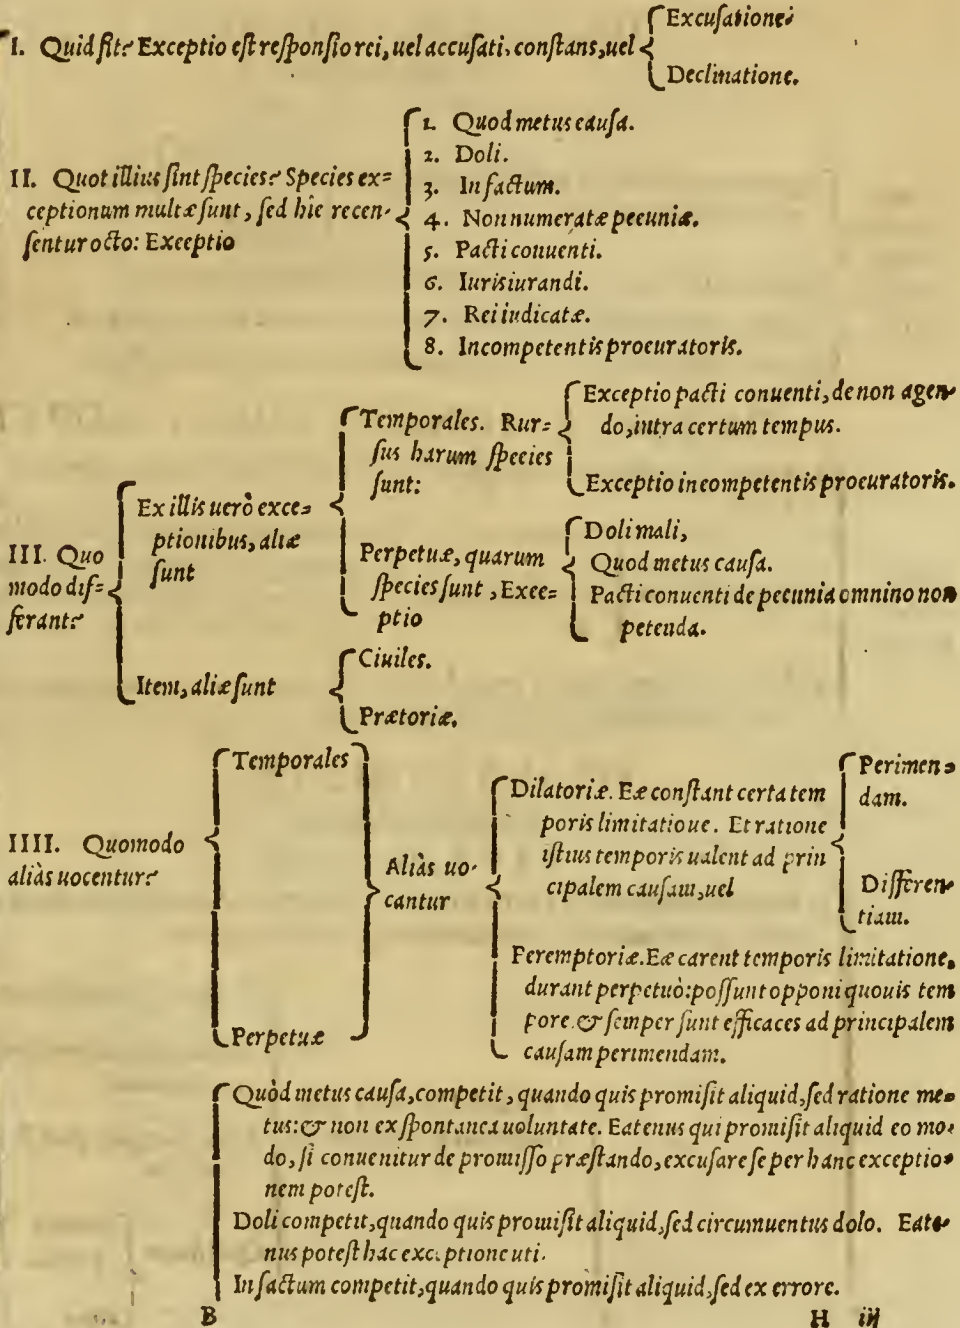 I. Quid ſit? Exceptio eſt reſponſio rei, uel accuſati, conſtans, uel
Excuſatione.
Declinatione.
II. Quot illius ſint ſpecies? Species ex=
ceptionum multæ ſunt, ſed hic recen-
ſentur octo: Exceptio
1. Quod metus cauſa.
2. Doli.
3. In factum.
4. Non numeratæ pecuniæ.
5. Pacti conuenti.
6. Iurisiurandi.
7. Rei iudicatæ.
8. Incompetentis procuratoris.
III. Quo
modo dif=
ferant?
Ex illis uerò exce=
ptionibus, aliæ
ſunt
Temporales. Rur=
ſus harum ſpecies
ſunt:
Exceptio pacti conuenti, de non agen-
do, intra certum tempus.
Exceptio incompetentis procuratoris.
Perpetuæ, quarum
ſpecies ſunt, Exce=
ptio
Doli mali,
Quod metus cauſa.
Pacti conuenti de pecunia omnino non
petenda.
Item, aliæ ſunt
Ciuiles.
Prætoriæ.
IIII. Quomodo
aliàs uocentur?
Temporales
Perpetuæ
Aliàs uo-
cantur
Dilatoriæ. Eæ conſtant certa tem
poris limitatione. Et ratione
iſtius temporis ualent ad prin
cipalem cauſam, uel
Perimen=
dam.
Differen-
tiam.
Peremptoriæ. Eæ carent temporis limitatione,
durant perpetuò: poſſunt opponi quouis tem
pore. & ſemper ſunt efficaces ad principalem
cauſam perimendam.
Quòd metus cauſa, competit, quando quis promiſit aliquid, ſed ratione me=
tus: & non ex ſpontanea uoluntate. Eatenus qui promiſit aliquid eo mo=
do, ſi conuenitur de promiſſo præſtando, excuſare ſe per hanc exceptio=
nem poteſt.
Doli competit, quando quis promiſit aliquid, ſed circumuentus dolo. Eate-
nus poteſt hac exceptione uti.
In factum competit, quando quis promiſit aliquid, ſed ex errore.
B H iij